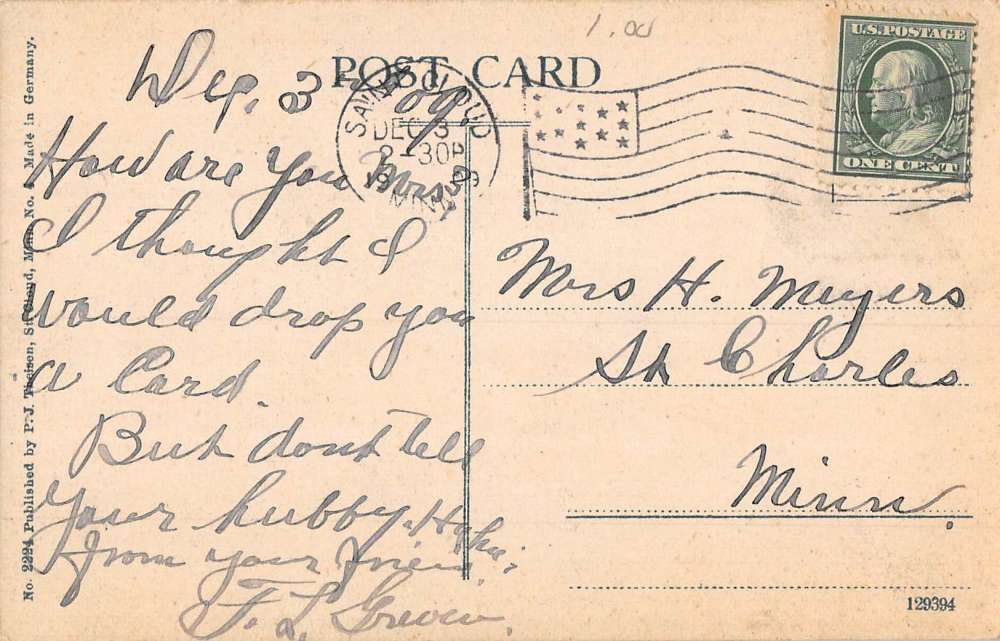 1.00
POST CARD
U.S. POSTAGE
ONE CENT
DEC 3
2-30P
1909
MINN
Dec. 3 - 09.
How are you Mrs.
I thought I
would drop you
a Card.
But dont tell
your hubby. Ha ha.
from your friend.
F. L.
Mrs H. Meyers
St Charles
Minn.
No. 2224 Published by P. J. Theisen, St. Cloud, Minn. No. Made in Germany.
129394